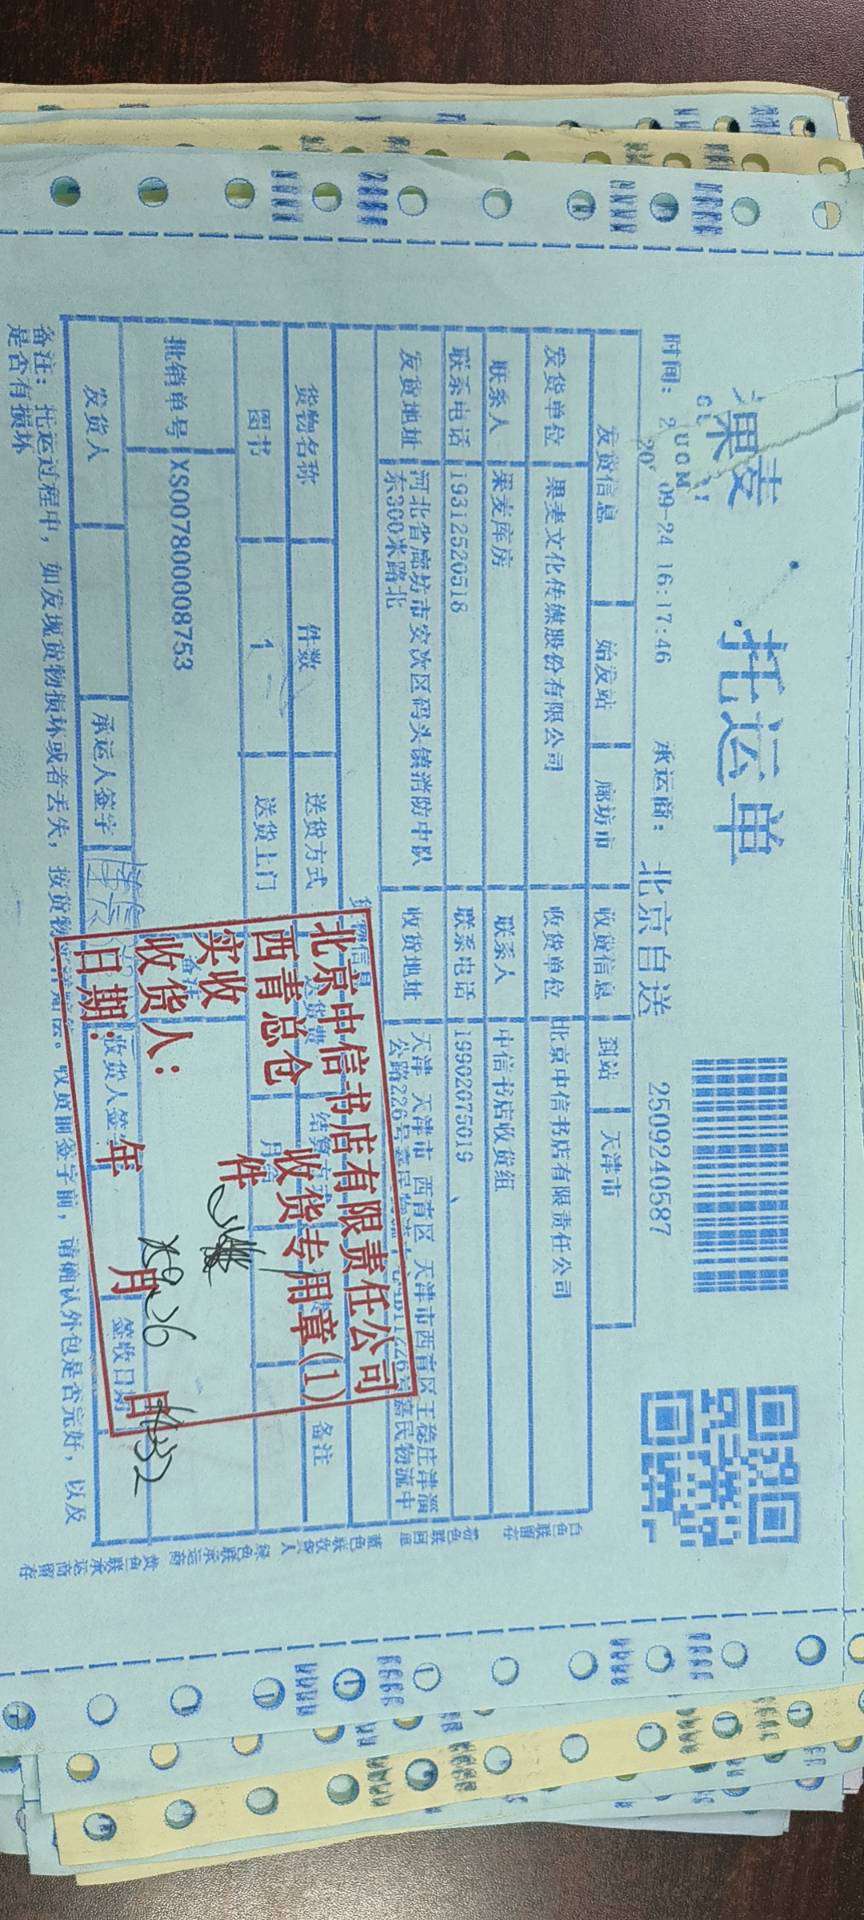 果麦 托运单
时间: 09-24 16:17:46 承运商: 北京自送 2509240587
发货信息 始发站 廊坊市 收货信息 到站 天津市
发货单位 果麦文化传媒股份有限公司 收货单位 北京中信书店有限责任公司
联系人 果麦库房 联系人 中信书店收货组
联系电话 19312520518 联系电话 19902075019
发货地址 河北省廊坊市安次区码头镇消防中队东300米路北 收货地址 天津 天津市 西青区 天津市西青区王稳庄津淄公路226号嘉民物流中
货物信息
货物名称 件数 送货方式 送货费 备注
图书 1 送货上门
批销单号 XS007800008753 备注
发货人 承运人签字 收货人签 签收日期
备注: 托运过程中, 如发现货物损坏或者丢失, 按货物 收货前签字前, 请确认外包是否完好, 以及
是否有损坏
白色联留存
蓝色联收货人
绿色联承运商
黄色联承运商留存
北京中信书店有限责任公司
西青总仓 收货专用章(1)
实收 件
收货人:
日期: 年 月 日